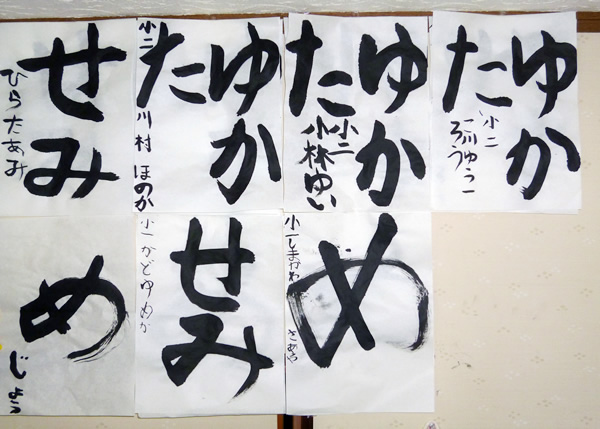 ゆか
た
小二
ゆか
た
小二
小林ゆい
ゆか
た
小二 川村 ほのか
せみ
ひらたあみ
め
小一しまかわ さあや
せみ
小一 かどゆめか
め
じょう